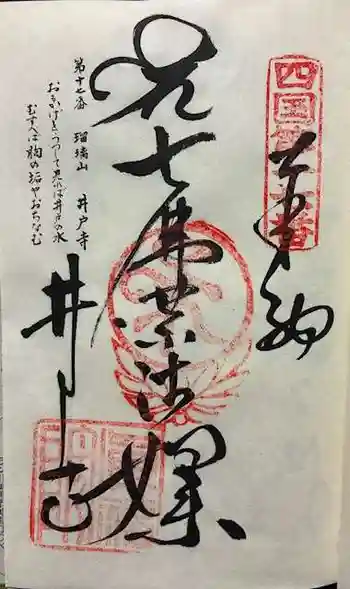 四国第十七番
奉納
七佛薬師
第十七番 瑠璃山 井戸寺
おもかげをうつして見れば井戸の水
むすべば胸の垢やおちなむ
井戸寺